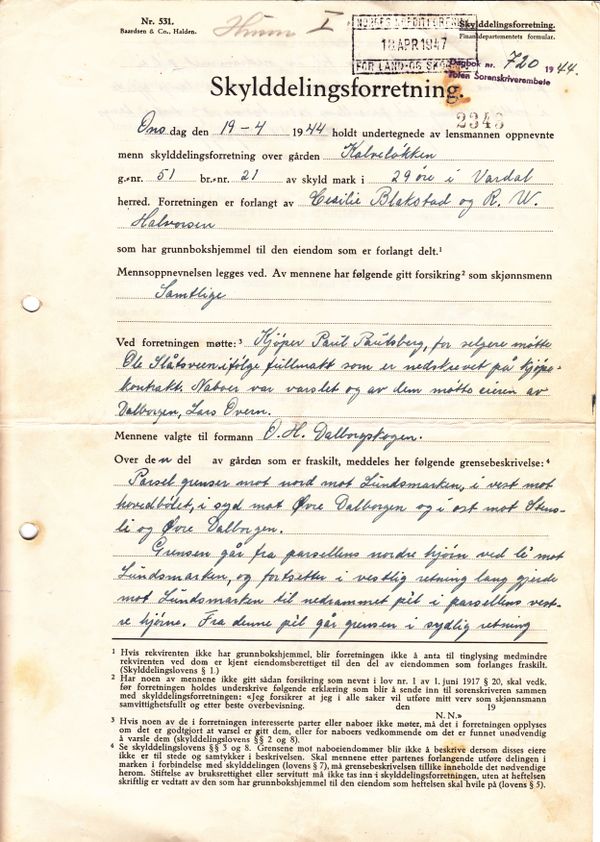 Nr. 531.
Baardsen & Co., Halden.
I
NORGES KREDITFORENING
18 APR 1947
FOR LAND- OG SKOGBR
Skylddelingsforretning.
Finansdepartementets formular.
Dagbok nr. 720 1944.
Toten Sorenskriverembete
Skylddelingsforretning.
2343
Onsdag den 19-4 1944 holdt undertegnede av lensmannen oppnevnte
menn skylddelingsforretning over gården Kalveløkken
g.-nr. 51 br.-nr. 21 av skyld mark i 29 øre i Vardal
herred. Forretningen er forlangt av Cesilie Blakstad og R. W.
Halvorsen
som har grunnbokshjemmel til den eiendom som er forlangt delt.¹
Mennsoppnevnelsen legges ved. Av mennene har følgende gitt forsikring² som skjønnsmenn
Samtlige
Ved forretningen møtte:³ Kjøper Paul Paulsberg, for selgere møtte
Ole Slåtsveen ifølge fullmakt som er nedskrevet på kjøpe-
kontrakt. Naboer var varslet og av dem møtte eieren av
Dalborgen, Lars Overn.
Mennene valgte til formann O. H. Dalborgskogen.
Over den del av gården som er fraskilt, meddeles her følgende grensebeskrivelse:⁴
Parsel grenser mot nord mot Lundsmarken, i vest mot
hovedbølet, i syd mot Øvre Dalborgen og i øst mot Stens-
li og Øvre Dalborgen.
Grensen går fra parsellens nordre hjørn ved le mot
Lundsmarken, og fortsetter i vestlig retning lang gjerde
mot Lundsmarken til nedrammet pêl i parsellens vest-
re hjørne. Fra denne pêl går grensen i sydlig retning
¹ Hvis rekvirenten ikke har grunnbokshjemmel, blir forretningen ikke å anta til tinglysing medmindre
rekvirenten ved dom er kjent eiendomsberettiget til den del av eiendommen som forlanges fraskilt.
(Skylddelingslovens § 1.)
² Har noen av mennene ikke gitt sådan forsikring som nevnt i lov nr. 1 av 1. juni 1917 § 20, skal vedk.
før forretningen holdes underskrive følgende erklæring som blir å sende inn til sorenskriveren sammen
med skylddelingsforretningen: «Jeg forsikrer at jeg i alle saker vil utføre mitt verv som skjønnsmann
samvittighetsfullt og etter beste overbevisning. den 19
N. N.»
³ Hvis noen av de i forretningen interesserte parter eller naboer ikke møter, må det i forretningen opplyses
om det er godtgjort at varsel er gitt dem, eller for naboers vedkommende om det er funnet unødvendig
å varsle dem (skylddelingslovens §§ 2 og 8).
⁴ Se skylddelingslovens §§ 3 og 8. Grensene mot naboeiendommer blir ikke å beskrive dersom disses eiere
ikke er til stede og samtykker i beskrivelsen. Skal mennene etter partenes forlangende utføre delingen i
marken i forbindelse med skylddelingen (lovens § 7), må grensebeskrivelsen tillike inneholde det nødvendige
herom. Stiftelse av bruksrettighet eller servitutt må ikke tas inn i skylddelingsforretningen, uten at heftelsen
skriftlig er vedtatt av den som har grunnbokshjemmel til den eiendom som heftelsen skal hvile på (lovens § 5).